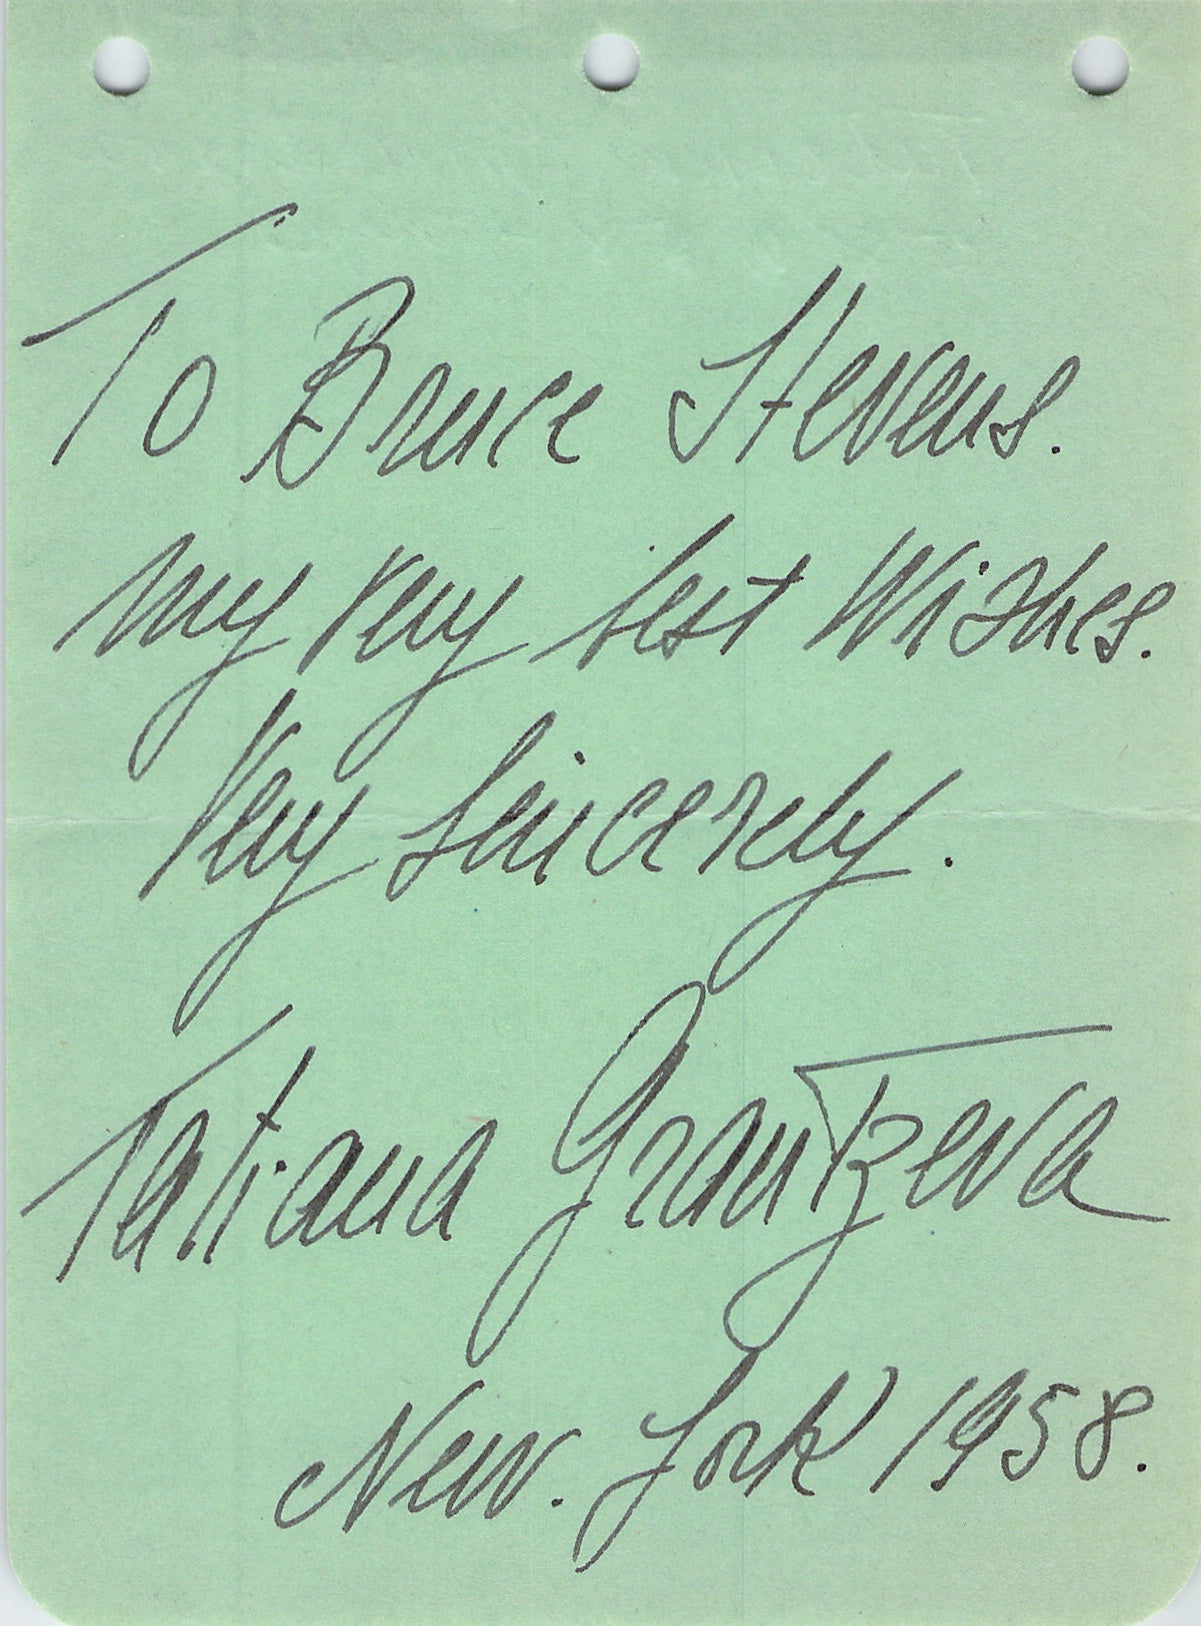 To Bruce Stevens.
my very best Wishes.
Very Sincerely.
Tatiana Grantzeva
New. York 1958.